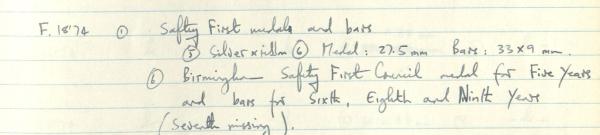 F. 18'74 ① Safty First medals and bars
⑤ Silver ⑥ Medal: 27.5 mm Bars: 33x9 mm.
⑥ Birmingham Safety First Council medal for Five Years
and bars for Sixth, Eighth and Ninth Years
(Seventh missing).